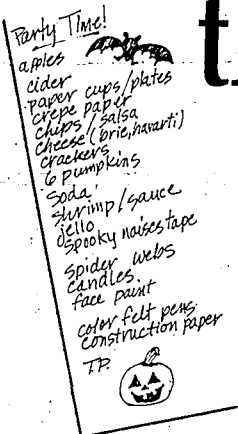 Party Time!
t
apples
cider
paper cups/plates
crepe paper
chips/salsa
cheese (brie, havarti)
crackers
6 pumpkins
soda
shrimp/sauce
jello
spooky noises tape
spider webs
candles
face paint
color felt pens
construction paper
TP.